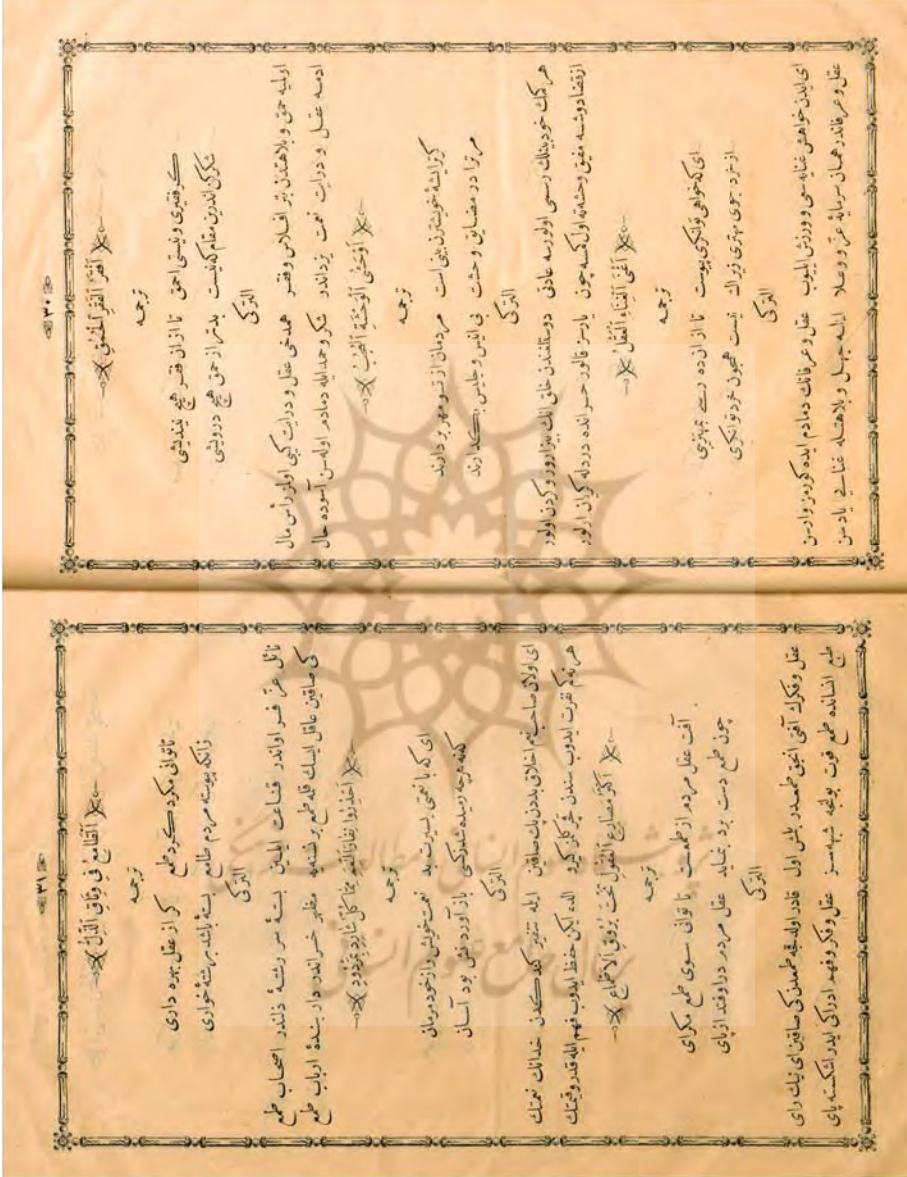 ﴿ ٣٠ ﴾
﴿ اَفْقَرُ الْفَقْرِ الْحُمْقُ ﴾
ترجمه
گر فقیری و نیستی احمق تا از ان فقر هیچ نندیشی
شکر کن اندرین مقام که نیست بدتر از حمق هیچ درویشی
الترکی
اولمیه حمق و بلاهتدن بتر افلاس و فقر همدخی عقل و درایت کبی اولمز رأس مال
ادمه عقل و درایت نعمت یزداندر شکر و حمد ایله دمادم اوله سن آسوده حال
﴿ اَوْحَشُ الْوَحْشَةِ الْعُجْبُ ﴾
ترجمه
گر ترا پیشه خویشتن بینی است مردمان از تو مهر بر دارند
مر ترا در مضایق وحشت بی انیس و جلیس بگذارند
الترکی
هر کمک خودبینلک رسمی اولورسه عادتی دوستلغندن خلق انک بیزار و روکردن اولور
ازقضا دوشسه مضیق وحشته اول کمسه چون یارسز قالور حسرانده درد ایله کریان اولور
﴿ اَغْنَی الْغِنَاءِ الْعَقْلُ ﴾
ترجمه
ای که خواهی توانگری پیوست تا از ان ره رسی بمهتری
از خرد جوی مهتری زیراک نیست همچون خرد توانگری
الترکی
ای ایدن خواهش غنایه سعی و ورزش المیوب عقل و عرفانک دمادم ایده کورمز وارسن
عقل و عرفاندر همان سرمایهٔ عز و علا ایلمه جهل و بلاهتله غنایی یاد سن
﴿ ٣١ ﴾
﴿ اَلطَّامِعُ فِی وِثَاقِ الذُّلِّ ﴾
ترجمه
تا توانی مگرد گرد طمع گر از عقل بهره داری
زانکه پیوسته مردم طامع بسته باشد برشتهٔ خواری
الترکی
نائل عز فراواندر قناعت ایلین بستهٔ سر رشتهٔ ذلتدر اصحاب طمع
کی صاقین عاقل ایسک قلمه طمع بر شیئه مظهر خسراندر دار بندهٔ ارباب طمع
﴿ اِحْذَرُوا نِفَارَ النِّعَمِ فَمَا كُلُّ شَارِدٍ بِمَرْدُودٍ ﴾
ترجمه
ای که با نعمتی بسیرت بد نعمت خویش را ز خود مرمان
که نه هرچه رمیده شد ز کسی باز آوردنش بود آسان
الترکی
ای اولان صاحب نعم اخلاق بددن بک صاقین ایله تنفیر کندکدن خدانک نعمتک
هر نه کم نفرت ایدوب سندن کرو الده ایکن حفظ ایدوب فهم ایله قدر و قیمتک
﴿ اَكْثَرُ مَصَارِعِ الْعُقُولِ تَحْتَ بُرُوقِ الْاَطْمَاعِ ﴾
ترجمه
آفت عقل مردم از طمعست تا توانی سوی طمع مگرای
چون طمع دست برد بنماید عقل مردم دراوفتد از پای
الترکی
عقل و فکرک آفتی انجق طمعدر بلش اول قادر اولدقجه طمعدن کی صاقین ای نیک رای
طبع انسانده طمع قوت بولنجه شبهه سز عقل و فکر و فهم ادراکی ایدر اشکسته پای